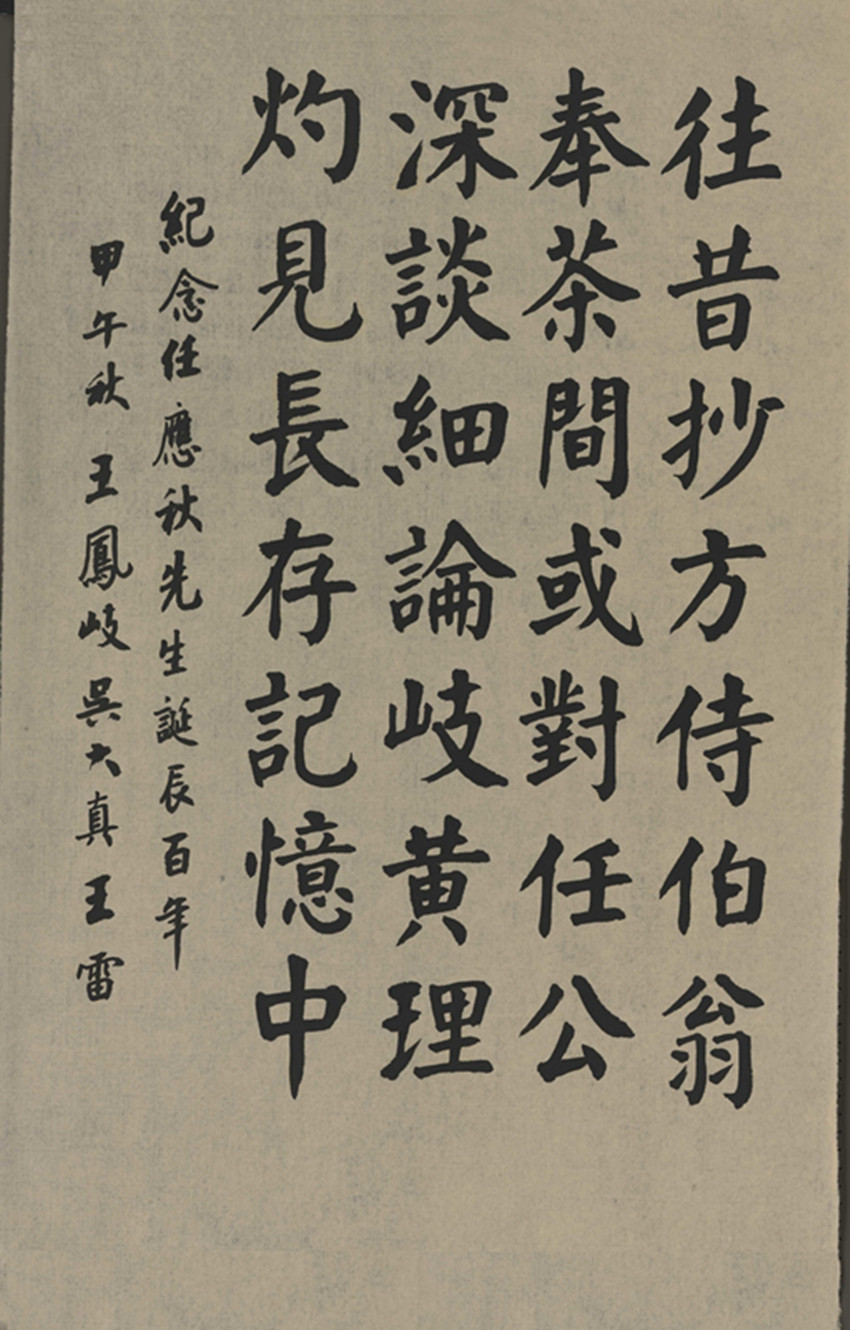 往昔抄方侍伯翁
奉茶間或對任公
深談細論岐黄理
灼見長存記憶中
紀念任應秋先生誕辰百年
甲午秋 王鳳岐吳大真王雷